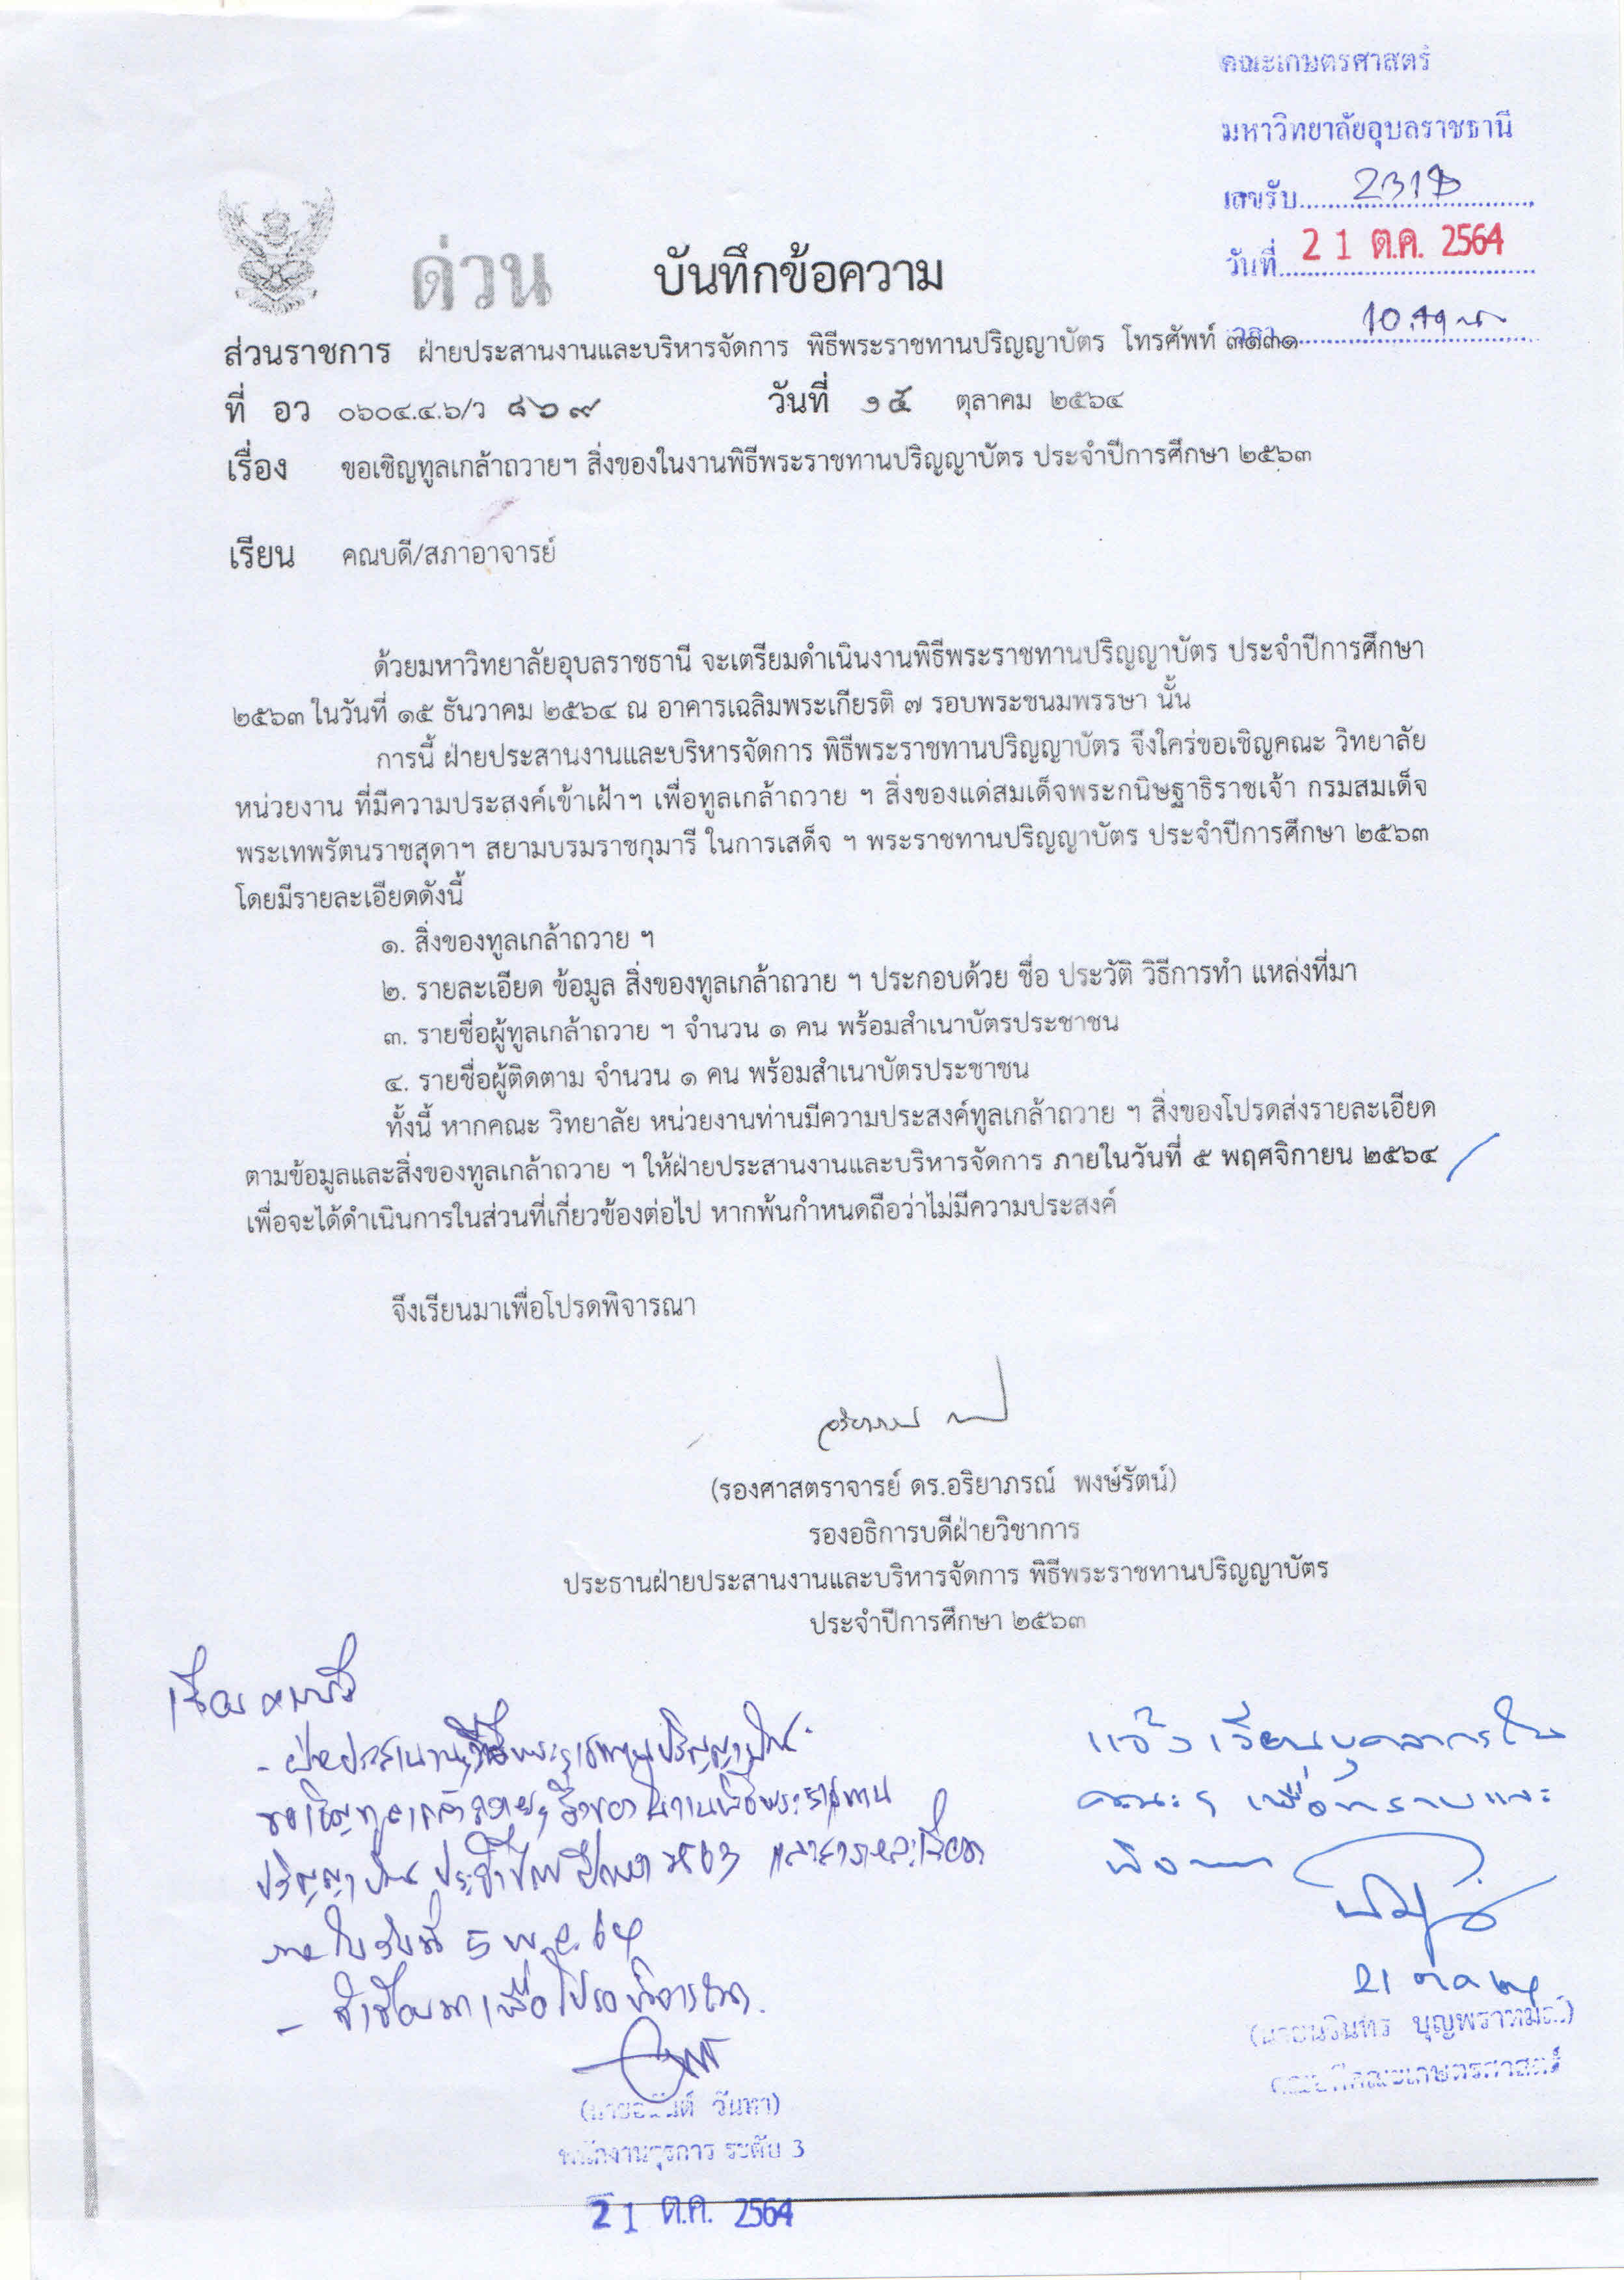 คณะเกษตรศาสตร์
มหาวิทยาลัยอุบลราชธานี
เลขรับ
วันที่ 2 1 ต.ค. 2564
ด่วน บันทึกข้อความ
ส่วนราชการ ฝ่ายประสานงานและบริหารจัดการ พิธีพระราชทานปริญญาบัตร โทรศัพท์ ๓๑๓๑
ที่ อว ๐๖๐๔.๔.๖/ว ๘๖๙ วันที่ ๑๕ ตุลาคม ๒๕๖๔
เรื่อง ขอเชิญทูลเกล้าถวายฯ สิ่งของในงานพิธีพระราชทานปริญญาบัตร ประจำปีการศึกษา ๒๕๖๓
เรียน คณบดี/สภาอาจารย์
ด้วยมหาวิทยาลัยอุบลราชธานี จะเตรียมดำเนินงานพิธีพระราชทานปริญญาบัตร ประจำปีการศึกษา
๒๕๖๓ ในวันที่ ๑๕ ธันวาคม ๒๕๖๔ ณ อาคารเฉลิมพระเกียรติ ๗ รอบพระชนมพรรษา นั้น
การนี้ ฝ่ายประสานงานและบริหารจัดการ พิธีพระราชทานปริญญาบัตร จึงใคร่ขอเชิญคณะ วิทยาลัย
หน่วยงาน ที่มีความประสงค์เข้าเฝ้าฯ เพื่อทูลเกล้าถวาย ฯ สิ่งของแด่สมเด็จพระกนิษฐาธิราชเจ้า กรมสมเด็จ
พระเทพรัตนราชสุดาฯ สยามบรมราชกุมารี ในการเสด็จ ฯ พระราชทานปริญญาบัตร ประจำปีการศึกษา ๒๕๖๓
โดยมีรายละเอียดดังนี้
๑. สิ่งของทูลเกล้าถวาย ฯ
๒. รายละเอียด ข้อมูล สิ่งของทูลเกล้าถวาย ฯ ประกอบด้วย ชื่อ ประวัติ วิธีการทำ แหล่งที่มา
๓. รายชื่อผู้ทูลเกล้าถวาย ฯ จำนวน ๑ คน พร้อมสำเนาบัตรประชาชน
๔. รายชื่อผู้ติดตาม จำนวน ๑ คน พร้อมสำเนาบัตรประชาชน
ทั้งนี้ หากคณะ วิทยาลัย หน่วยงานท่านมีความประสงค์ทูลเกล้าถวาย ฯ สิ่งของโปรดส่งรายละเอียด
ตามข้อมูลและสิ่งของทูลเกล้าถวาย ฯ ให้ฝ่ายประสานงานและบริหารจัดการ ภายในวันที่ ๕ พฤศจิกายน ๒๕๖๔
เพื่อจะได้ดำเนินการในส่วนที่เกี่ยวข้องต่อไป หากพ้นกำหนดถือว่าไม่มีความประสงค์
จึงเรียนมาเพื่อโปรดพิจารณา
(รองศาสตราจารย์ ดร.อริยาภรณ์ พงษ์รัตน์)
รองอธิการบดีฝ่ายวิชาการ
ประธานฝ่ายประสานงานและบริหารจัดการ พิธีพระราชทานปริญญาบัตร
ประจำปีการศึกษา ๒๕๖๓
เรียน คณบดี
- ฝ่ายประสานงานพิธีพระราชทานปริญญาบัตร
ขอเชิญทูลเกล้าถวายฯ สิ่งของในงานพิธีพระราชทาน
ปริญญาบัตร ประจำปีการศึกษา 2563
ภายในวันที่ 5 พ.ย. 64
- จึงเรียนมาเพื่อโปรดพิจารณา
แจ้งเวียนบุคลากรใน
คณะฯ เพื่อทราบและ
พิจารณา
21 ต.ค.
บุญพราหมณ์)
คณบดีคณะเกษตรศาสตร์
วันทา)
พนักงานธุรการ ระดับ 3
2 1 ต.ค. 2564